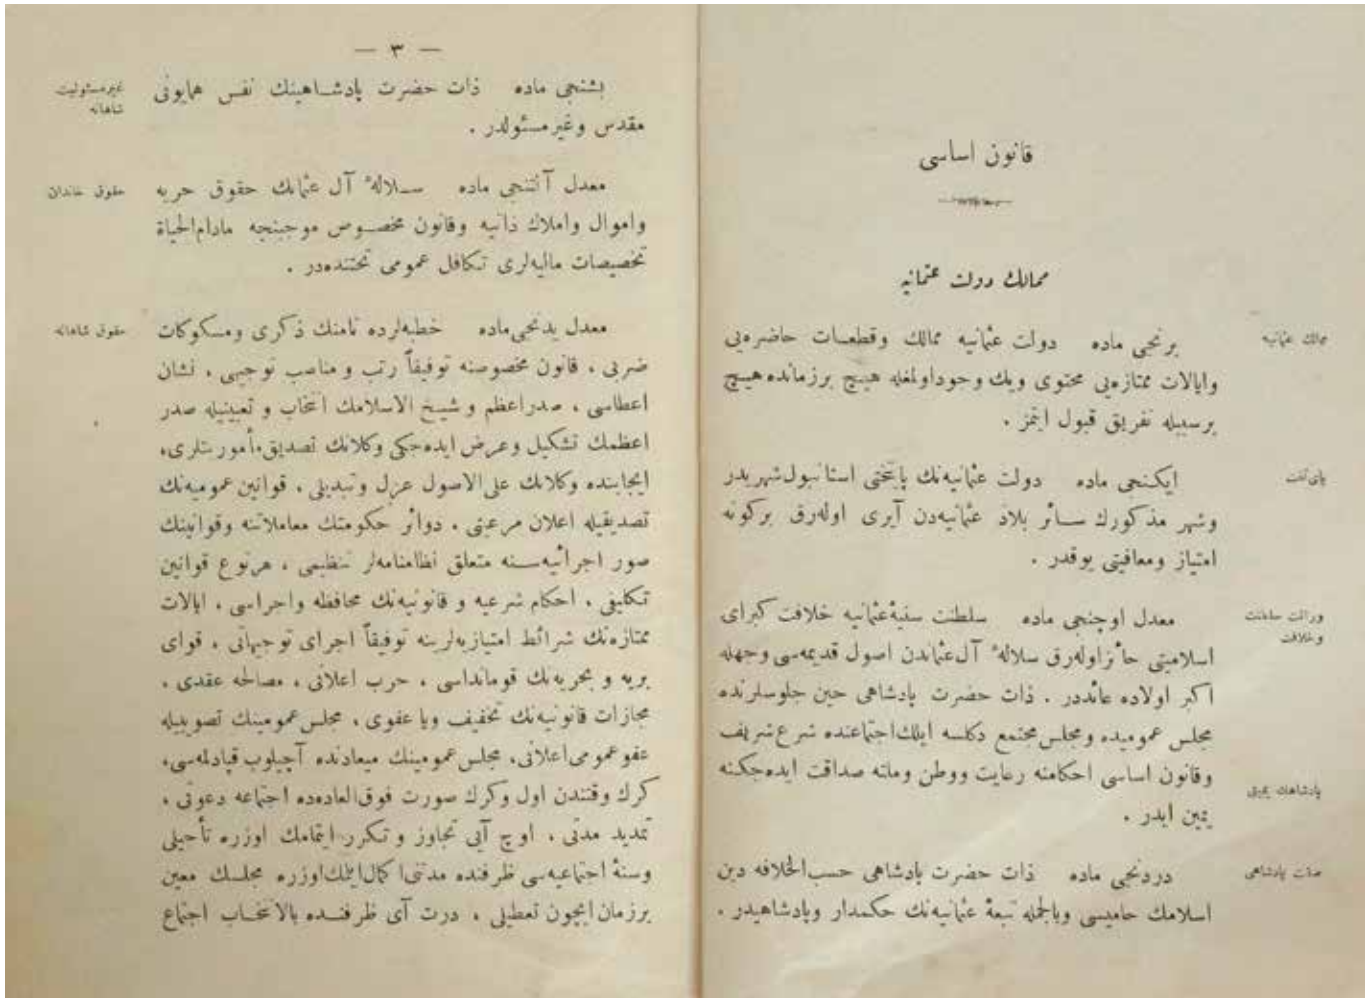 قانون اساسی
ممالك دولت عثمانیه
ممالك عثمانیه
برنجی ماده دولت عثمانیه ممالك وقطعات حاضره‌یی
وایالات ممتازه‌یی محتوی ویك وجوداولمغله هیچ برزمانده هیچ
برسببله تفریق قبول ایتمز .
پای تخت
ایكنجی ماده دولت عثمانیه‌نك پایتختی استانبول شهریدر
وشهر مذكورك سائر بلاد عثمانیه‌دن آیری اوله‌رق بركونه
امتیاز ومعافیتی یوقدر .
وراثت سلطنت
وخلافت
معدل اوچنجی ماده سلطنت سنیۀ عثمانیه خلافت كبرای
اسلامیتی حائزاوله‌رق سلالۀ آل عثماندن اصول قدیمه‌سی وجهله
اكبر اولاده عائددر . ذات حضرت پادشاهی حین جلوسلرنده
مجلس عمومیده ومجلس مجتمع دكلسه ایلك اجتماعنده شرع شریف
وقانون اساسی احكامنه رعایت ووطن وملته صداقت ایده‌جكنه
پادشاهك یمینی
یمین ایدر .
صفات پادشاهی
دردنجی ماده ذات حضرت پادشاهی حسب‌الخلافه دین
اسلامك حامیسی وبالجمله تبعۀ عثمانیه‌نك حكمدار وپادشاهیدر .
— ٣ —
غیرمسئولیت
شاهانه
بشنجی ماده ذات حضرت پادشاهینك نفس همایونی
مقدس وغیرمسئولدر .
حقوق خاندان
معدل آلتنجی ماده سلالۀ آل عثمانك حقوق حریه
واموال واملاك ذاتیه وقانون مخصوص موجبنجه مادام‌الحیاة
تخصیصات مالیه‌لری تكافل عمومی تحتنده‌در .
حقوق شاهانه
معدل یدنجی ماده خطبه‌لرده نامنك ذكری ومسكوكات
ضربی ، قانون مخصوصنه توفیقاً رتب و مناصب توجیهی ، نشان
اعطاسی ، صدراعظم و شیخ الاسلامك انتخاب و تعیینیله صدر
اعظمك تشكیل وعرض ایده‌جكی وكلانك تصدیق مأموریتلری،
ایجابنده وكلانك علی‌الاصول عزل وتبدیلی ، قوانین عمومیه‌نك
تصدیقیله اعلان مرعیتی ، دوائر حكومتك معاملاتنه وقوانینك
صور اجرائیه‌سنه متعلق نظامنامه‌لر تنظیمی ، هرنوع قوانین
تكلیفی ، احكام شرعیه و قانونیه‌نك محافظه واجراسی ، ایالات
ممتازه‌نك شرائط امتیازیه‌لرینه توفیقاً اجرای توجیهاتی ، قوای
بریه و بحریه‌نك قومانداسی ، حرب اعلانی ، مصالحه عقدی ،
مجازات قانونیه‌نك تخفیف ویا عفوی ، مجلس عمومینك تصویبیله
عفو عمومی اعلانی، مجلس عمومینك میعادنده آچیلوب قپادلمه‌سی،
كرك وقتندن اول وكرك صورت فوق‌العاده‌ده اجتماعه دعوتی ،
تمدید مدتی ، اوچ آیی تجاوز و تكرر ایتمامك اوزره تأجیلی
وسنۀ اجتماعیه‌سی ظرفنده مدتنی اكمال ایلك اوزره مجلسك معین
برزمان ایچون تعطیلی ، درت آی ظرفنده بالانتخاب اجتماع